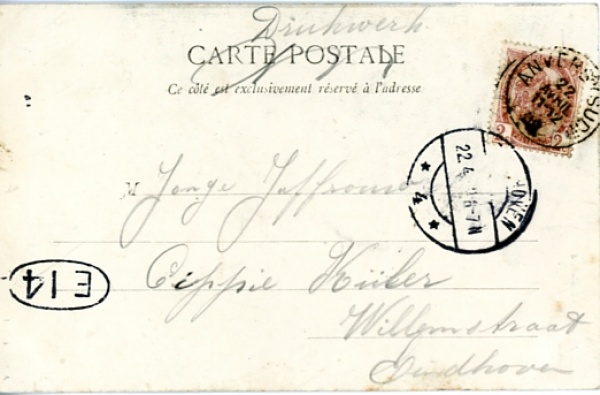 Drukwerk
CARTE POSTALE
Ce côté est exclusivement réservé à l'adresse
ANVERS SUD
22
11-12
2 2
22.4
6-7N
* 4 *
M Jonge Juffrouw
Cippie Küler
Willemstraat
Eindhoven
E14